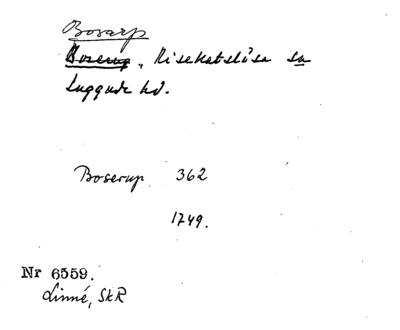 Bosarp
Boserup, Risekatslösa sn
Luggude hd.
Boserup 362
1749.
Nr 6559.
Linné, SkR